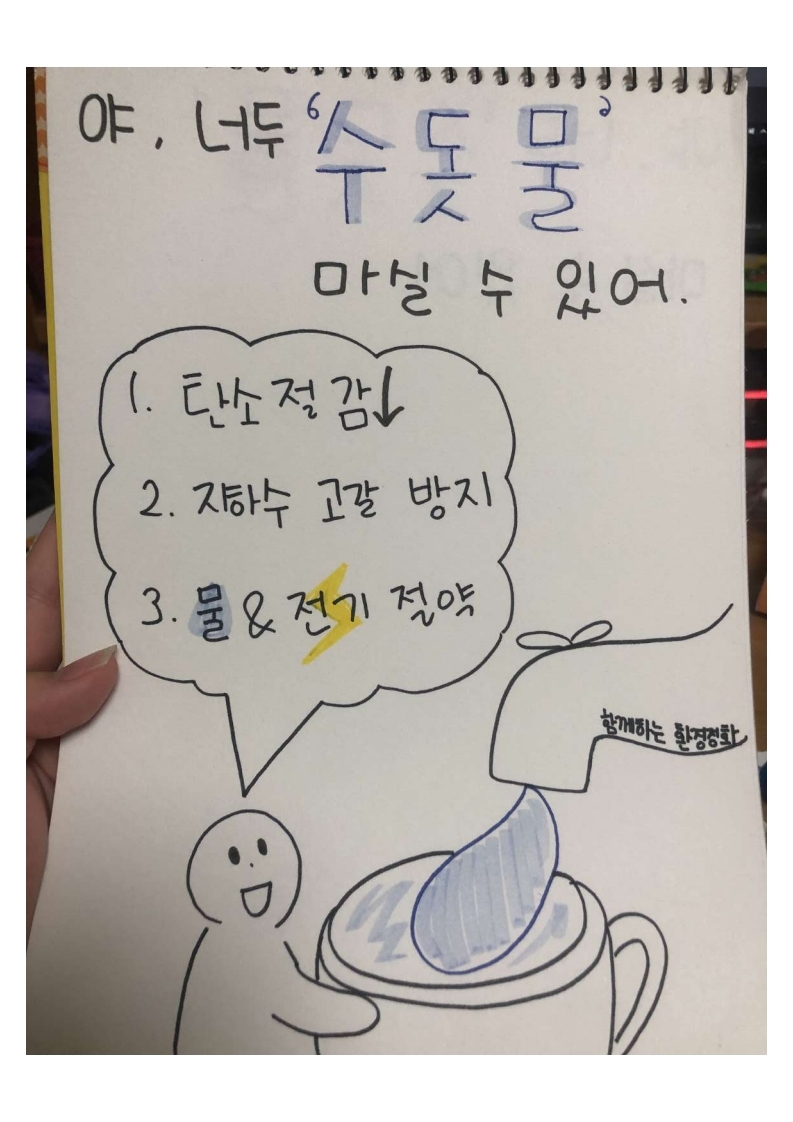 야, 너두 '수돗물'
마실 수 있어.
1. 탄소절감↓
2. 지하수 고갈 방지
3. 물 & 전기 절약
함께하는 환경정화